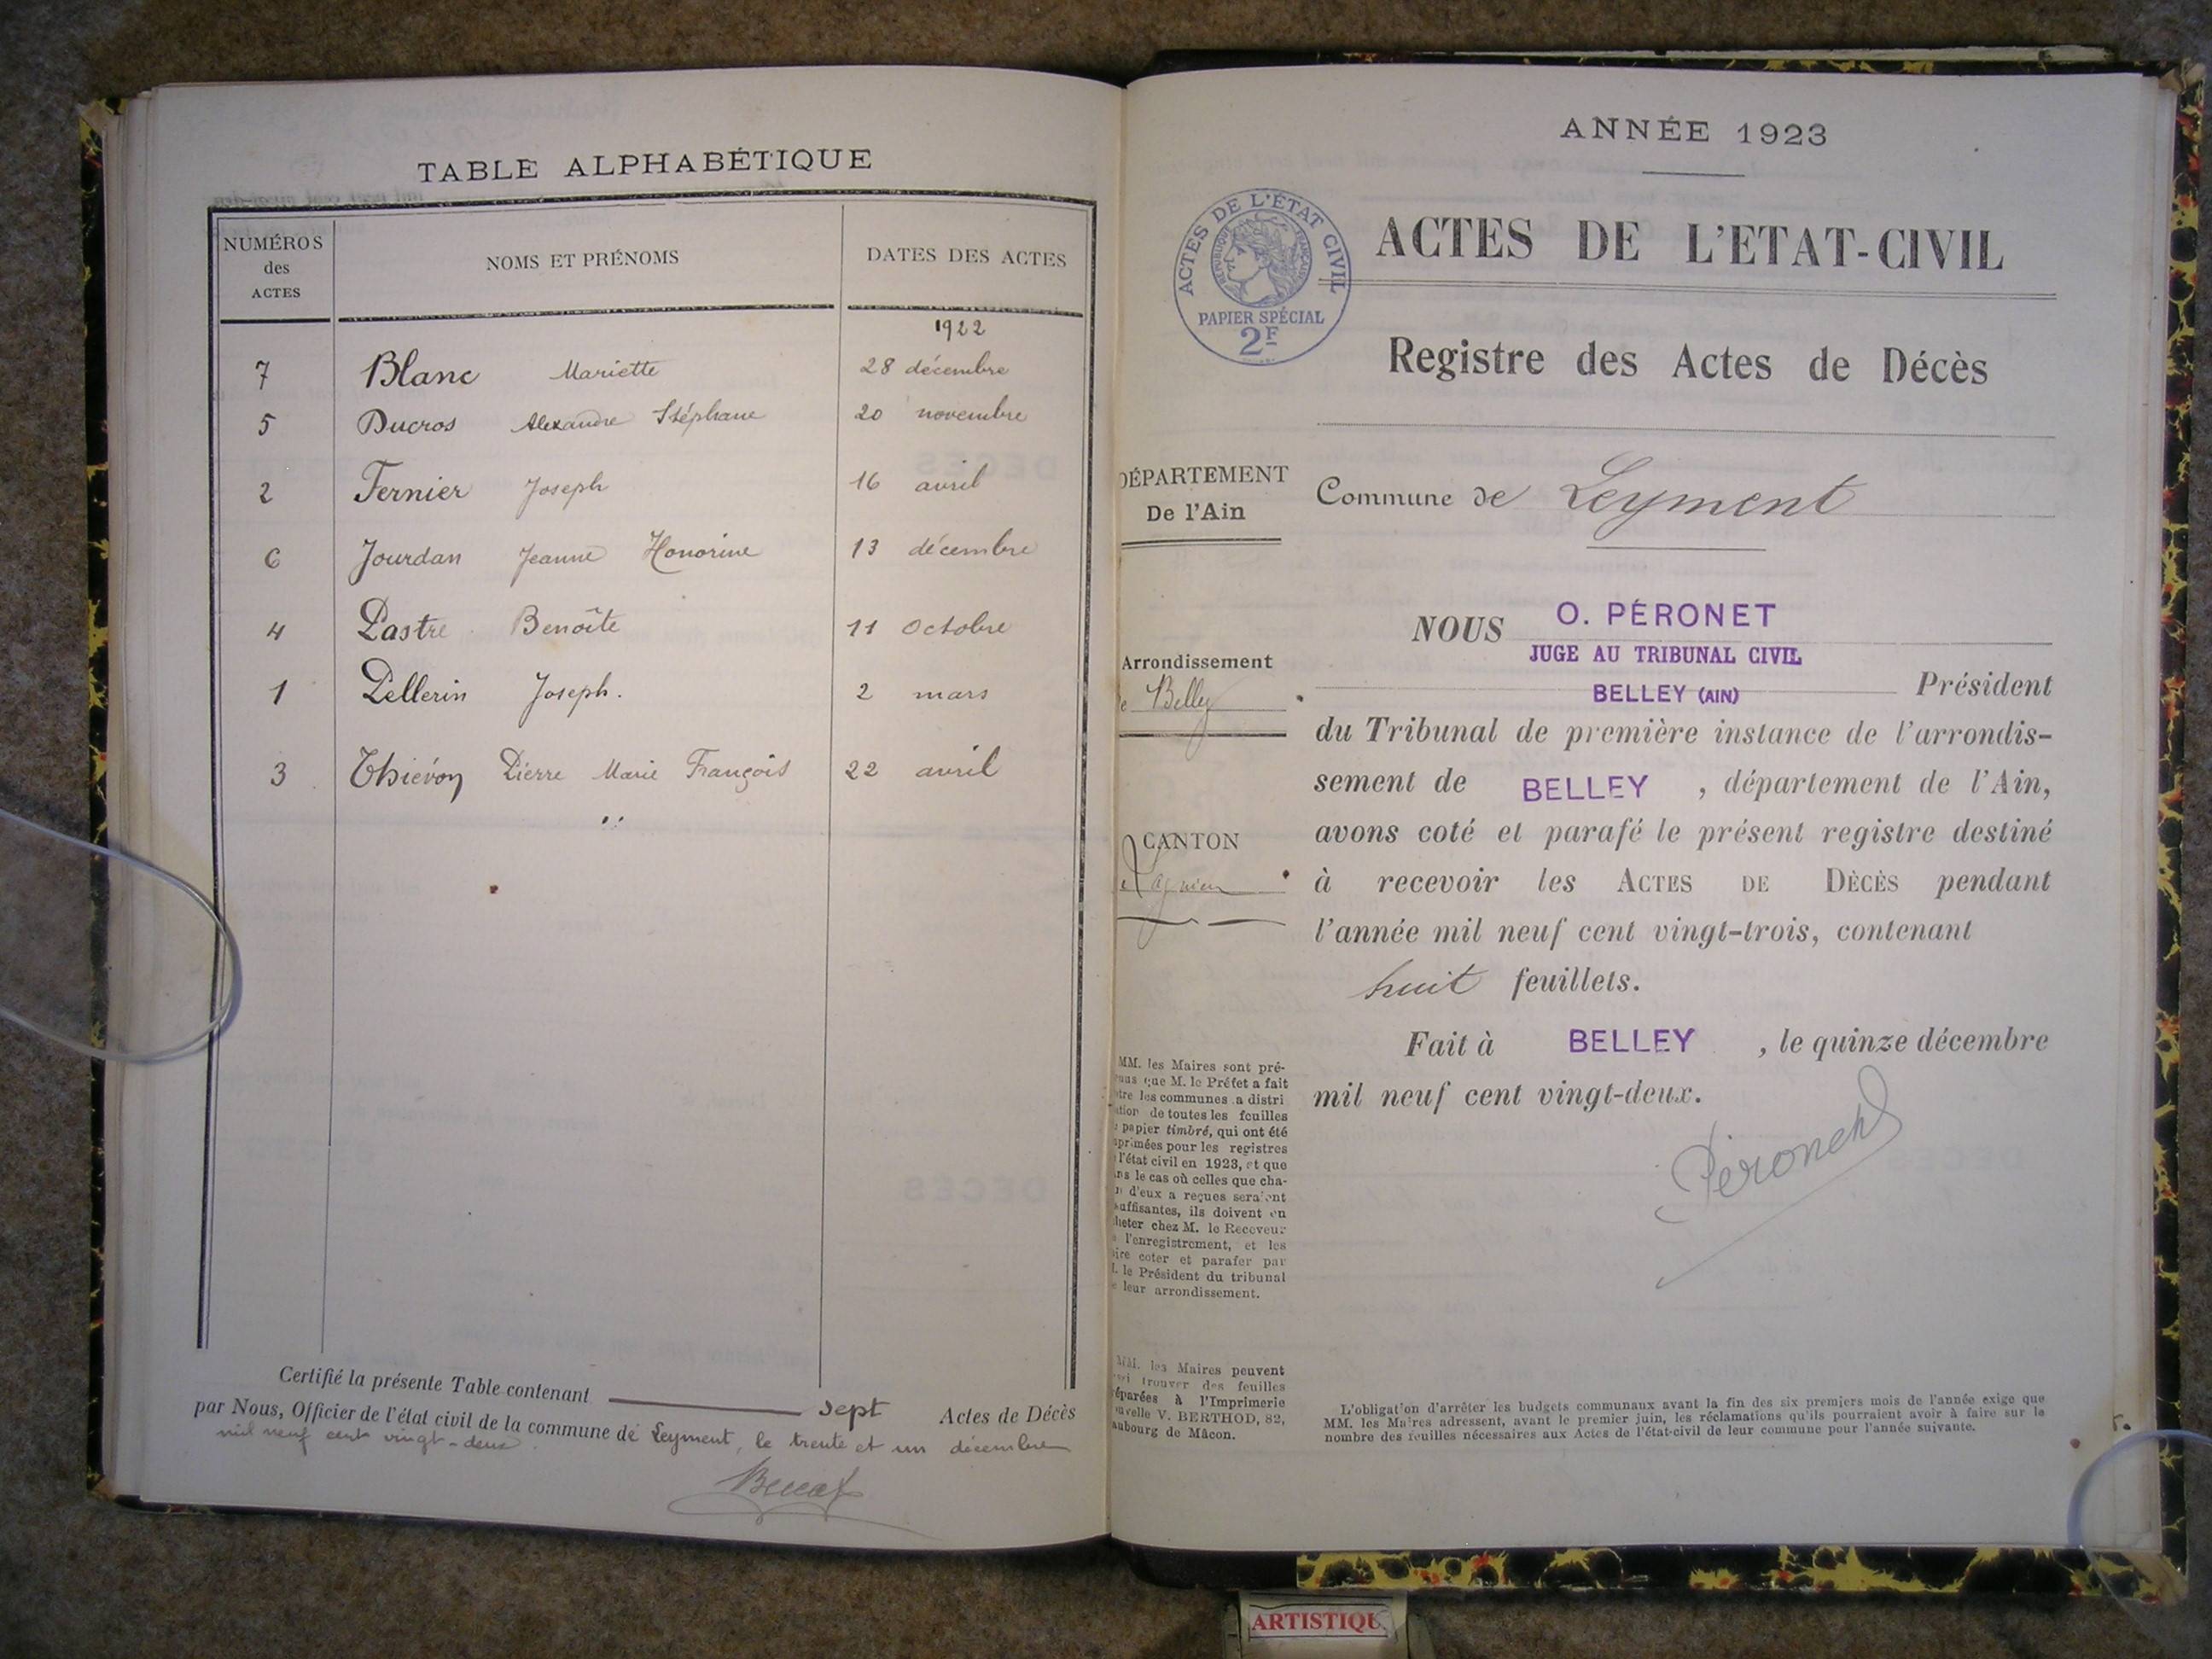 TABLE ALPHABÉTIQUE
NUMÉROS des ACTES NOMS ET PRÉNOMS DATES DES ACTES
1922
7 Blanc Mariette 28 décembre
5 Ducros Alexandre Stéphane 20 novembre
2 Fernier Joseph 16 avril
6 Jourdan Jeanne Honorine 13 décembre
4 Pastre Benoîte 11 Octobre
1 Pellerin Joseph. 2 mars
3 Thiévon Pierre Marie François 22 avril
Certifié la présente Table contenant sept Actes de Décès
par Nous, Officier de l'état civil de la commune de Leyment, le trente et un décembre
mil neuf cent vingt-deux
ANNÉE 1923
ACTES DE L'ÉTAT CIVIL
RÉPUBLIQUE FRANÇAISE
PAPIER SPÉCIAL
2F
ACTES DE L'ETAT-CIVIL
Registre des Actes de Décès
DÉPARTEMENT
De l'Ain
Commune de Leyment
Arrondissement
de Belley
CANTON
de Lagnieu
NOUS O. PÉRONET
JUGE AU TRIBUNAL CIVIL
BELLEY (AIN) Président
du Tribunal de première instance de l'arrondis-
sement de BELLEY, département de l'Ain,
avons coté et parafé le présent registre destiné
à recevoir les ACTES DE DÈCÈS pendant
l'année mil neuf cent vingt-trois, contenant
huit feuillets.
Fait à BELLEY, le quinze décembre
mil neuf cent vingt-deux.
Péronet
MM. les Maires sont pré-
que M. le Préfet a fait
les communes a distri
de toutes les feuilles
papier timbré, qui ont été
pour les registres
l'état civil en 1923, et que
le cas où celles que cha-
d'eux a reçues seraient
ils doivent en
chez M. le Receveur
l'enregistrement, et les
coter et parafer par
le Président du tribunal
leur arrondissement.
MM. les Maires peuvent
trouver des feuilles
à l'Imprimerie
V. BERTHOD, 82,
de Mâcon.
L'obligation d'arrêter les budgets communaux avant la fin des six premiers mois de l'année exige que
MM. les Maires adressent, avant le premier juin, les réclamations qu'ils pourraient avoir à faire sur le
nombre des feuilles nécessaires aux Actes de l'état-civil de leur commune pour l'année suivante.
ARTISTIQU